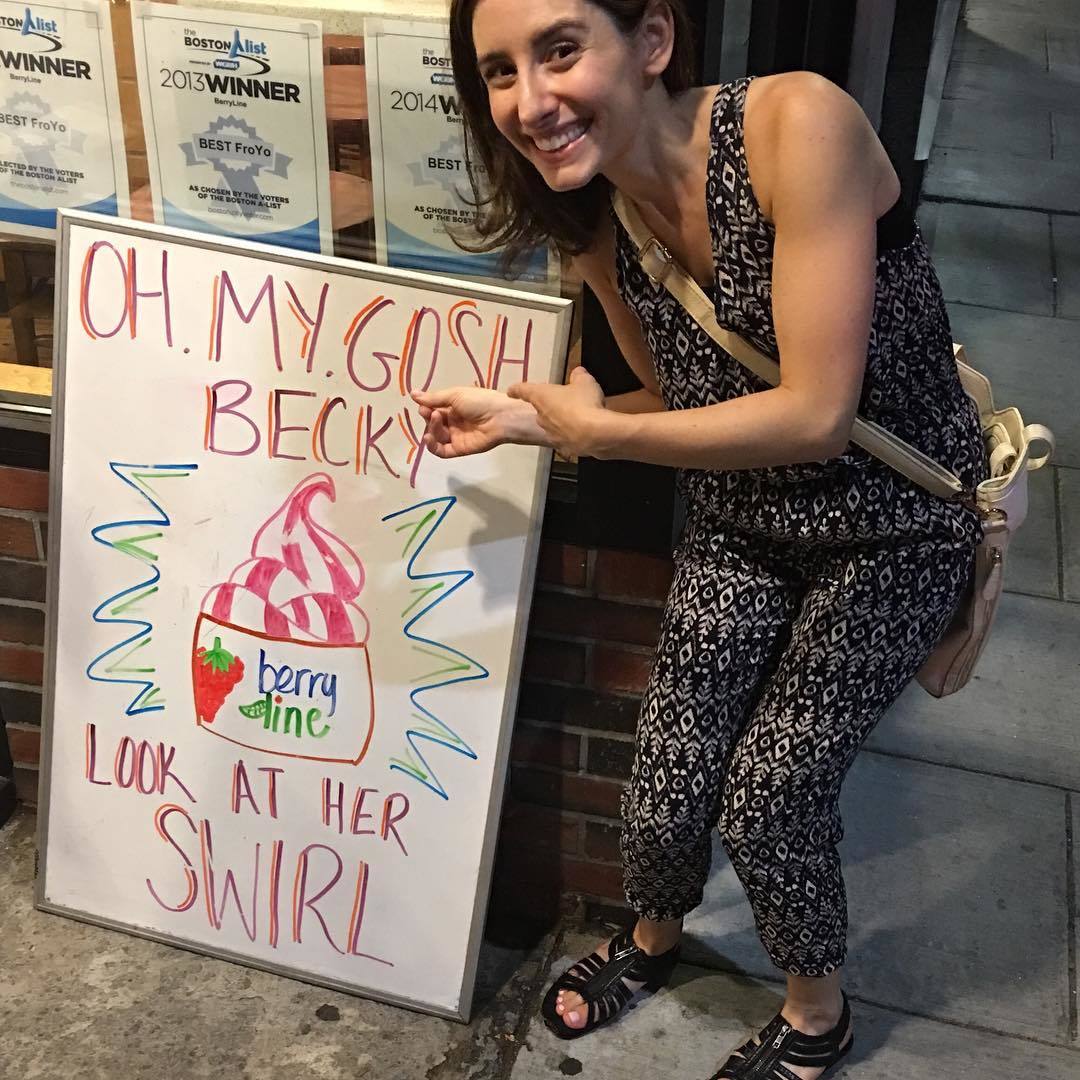 BOSTON A list
WINNER
BerryLine
BEST FroYo
ELECTED BY THE VOTERS
OF THE BOSTON ALIST
the
BOSTON A list
WGBH
2013 WINNER
BerryLine
BEST FroYo
AS CHOSEN BY THE VOTERS
OF THE BOSTON A-LIST
the
BOST
WGBH
2014 W
BEST Fro
AS CHOSEN BY
OF THE BOSTON
OH. MY. GOSH
BECKY
berry
line
LOOK AT HER
SWIRL